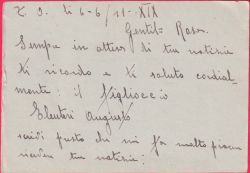 Z. O. li 6-6/41-XIX
Gentil. Rosa.
Sempre in attesa di tue notizie
ti ricordo e ti saluto cordial-
mente: il figlioccio
Eleuteri Augusto
scrivi presto che mi fa molto piacere
avere tue notizie: